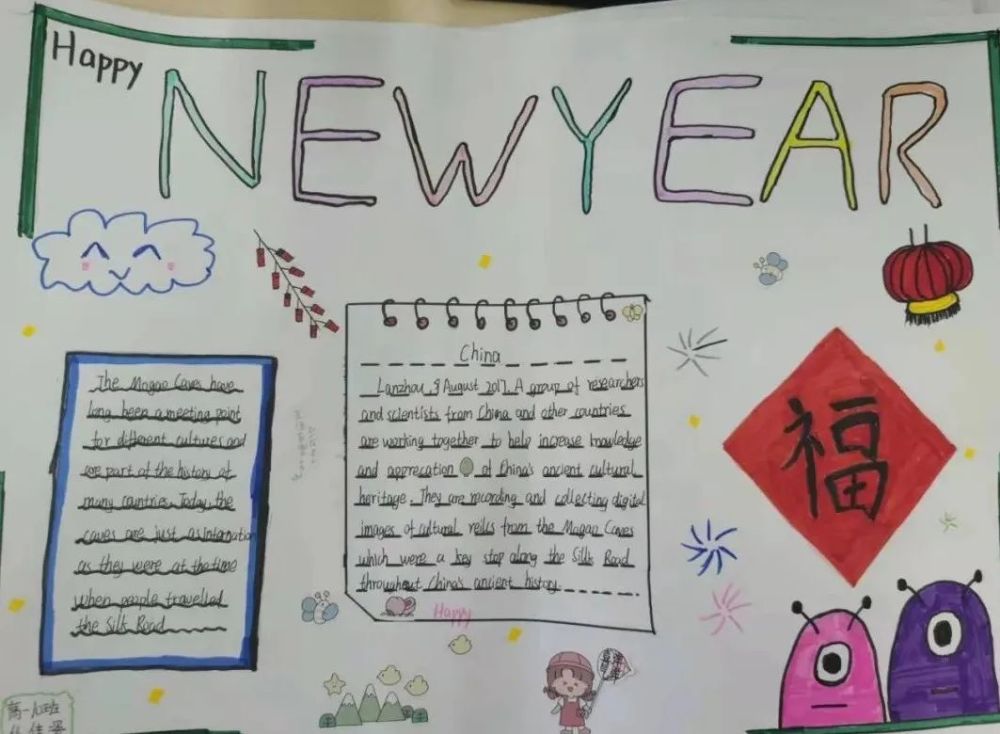 Happy
NEW YEAR
The Mogao Caves have
long been a meeting point
for different cultures and
are part of the history of
many countries. Today, the
caves are just as internation
as they were at the time
when people travelled
the Silk Road
China
Lanzhou, 9 August 2017. A group of researchers
and scientists from China and other countries
are working together to help increase knowledge
and apprecation of China's ancient cultural
heritage. They are recording and collecting digital
images of cultural relics from the Mogao Caves
which were a key stop along the Silk Road
throughout China's ancient history.
Happy
福
高一